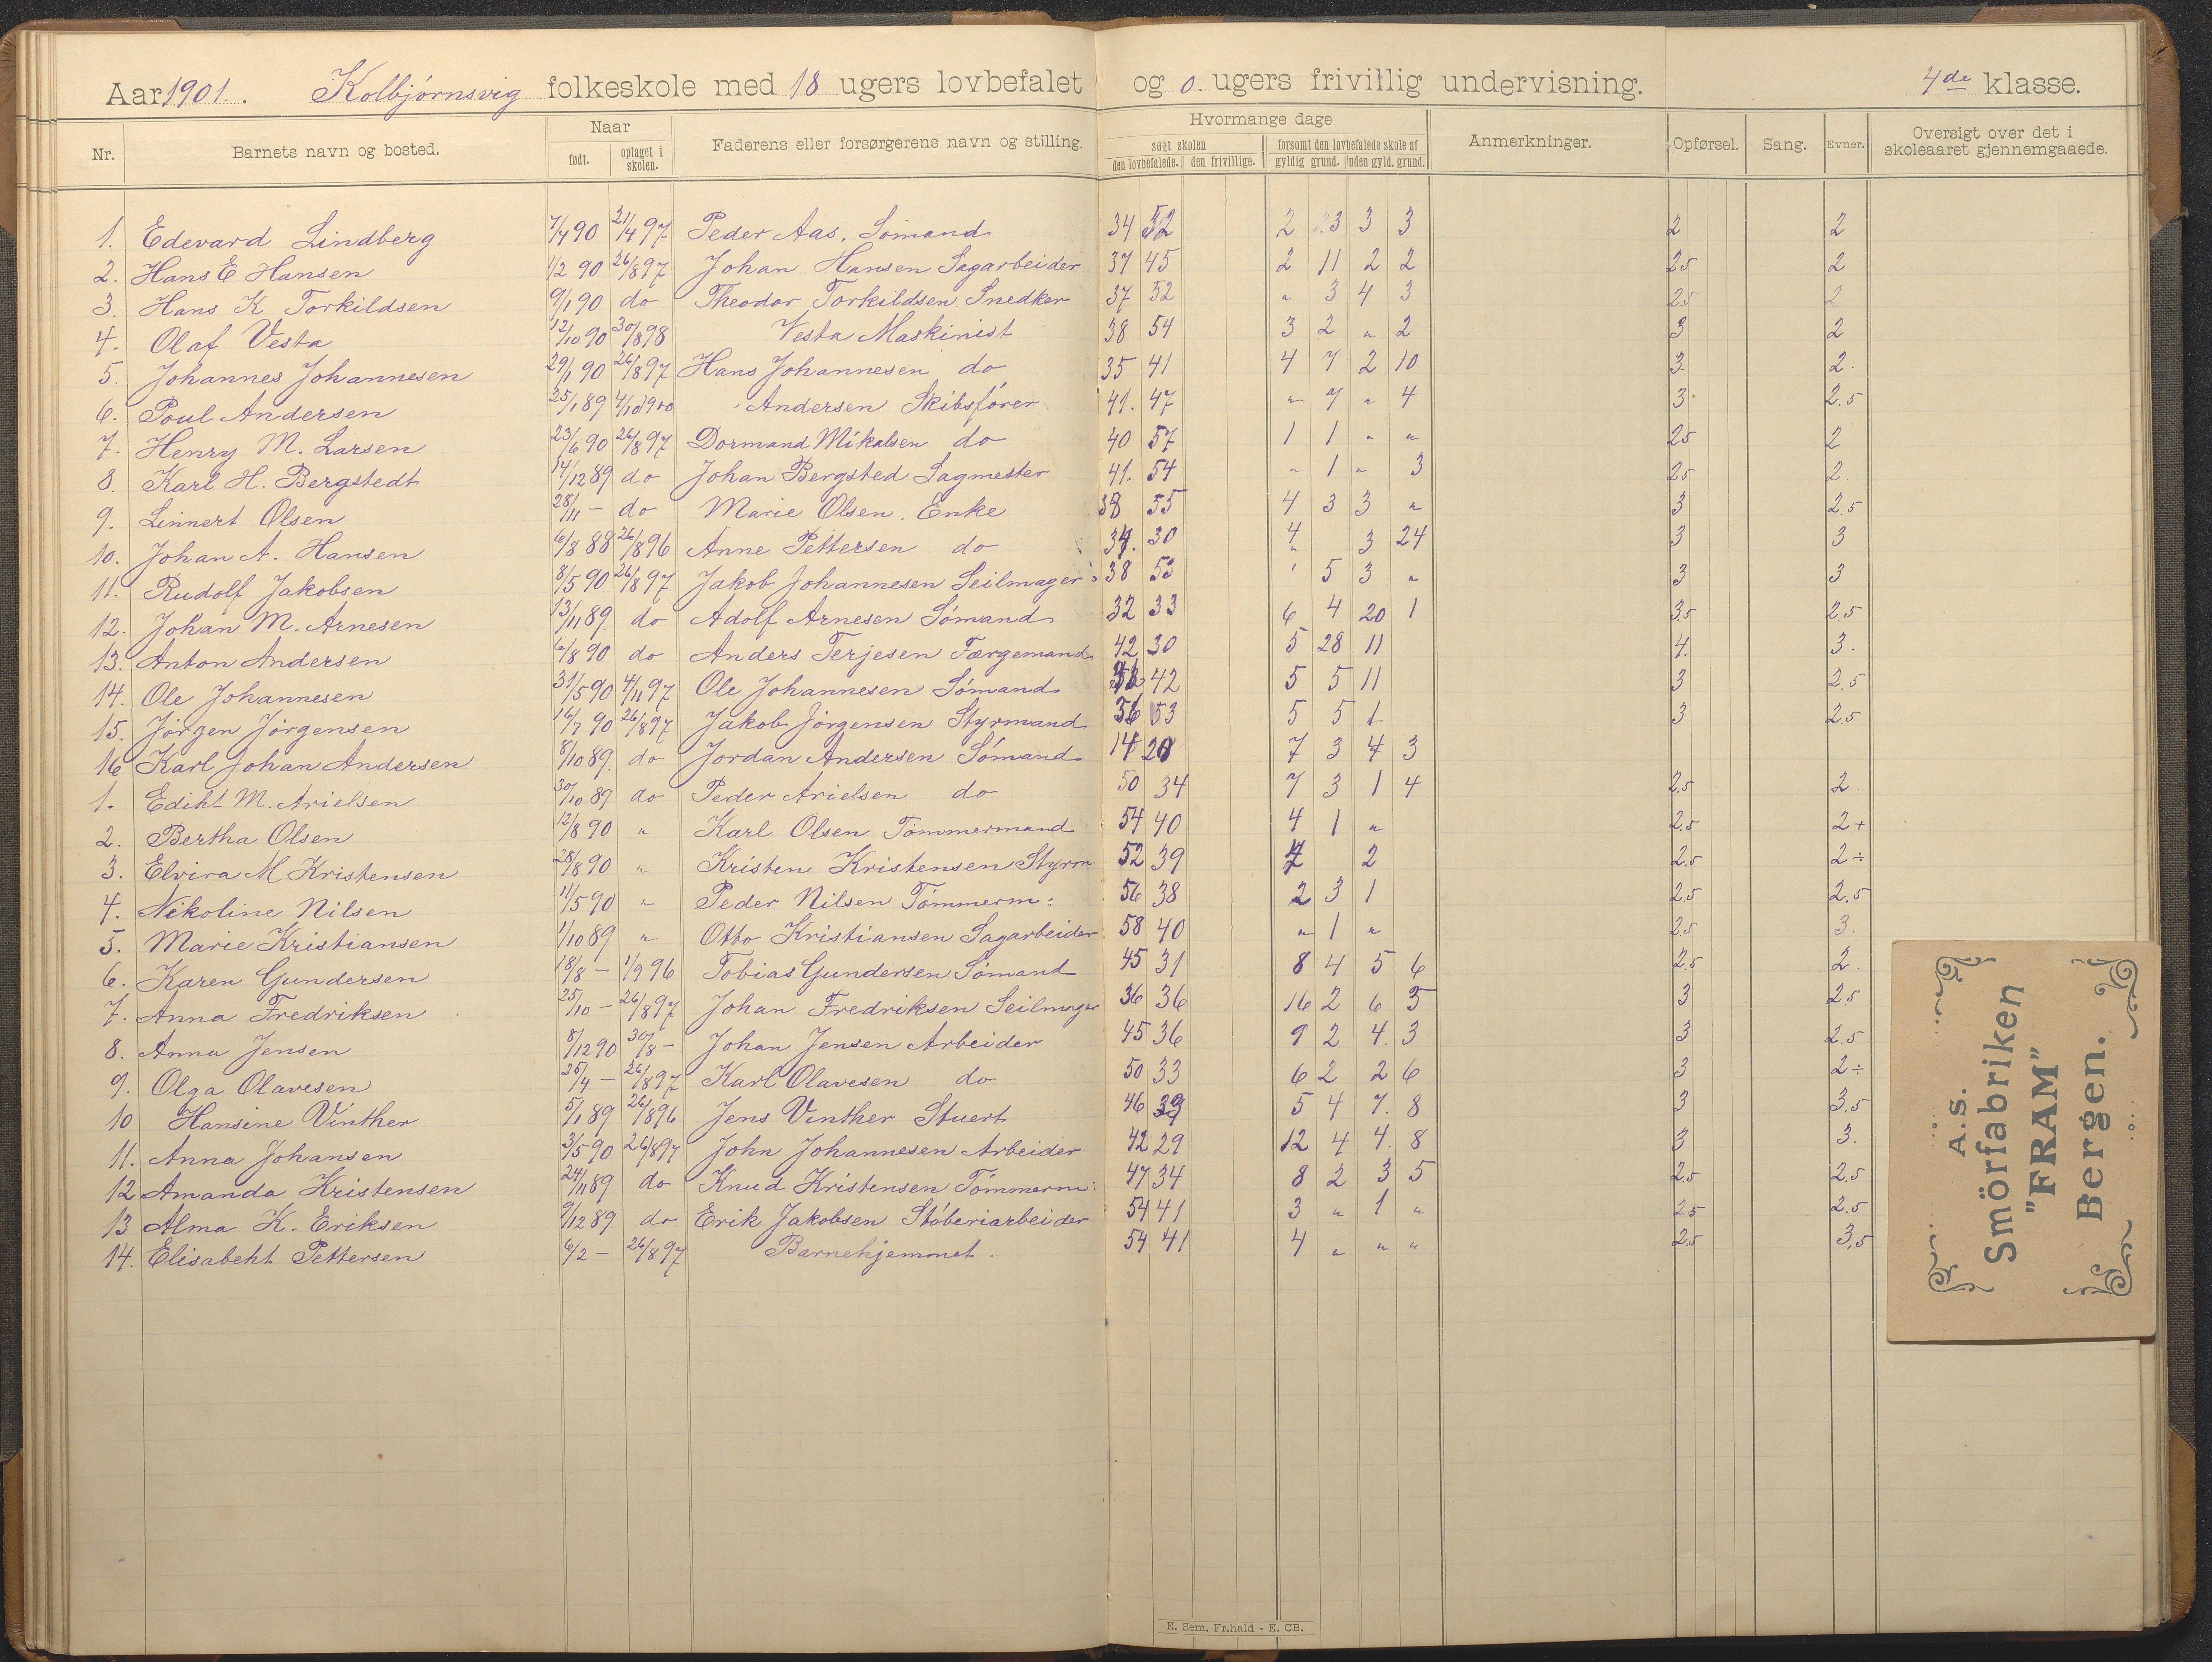 Aar 1901. Kolbjörnsvig folkeskole med 18 ugers lovbefalet og 0. ugers frivillig undervisning. 4de klasse.
Nr. Barnets navn og bosted. Naar Faderens eller forsørgerens navn og stilling. Hvormange dage Anmerkninger. Opførsel. Sang. Evner. Oversigt over det i skoleaaret gjennemgaaede.
født. optaget i skolen. søgt skolen forsømt den lovbefalede skole af
den lovbefalede. den frivillige. gyldig grund. uden gyld. grund.
1. Edevard Lindberg 7/4 90 21/4 97 Peder Aas, Sömand 34 52 2 23 3 3 2 2
2. Hans E Hansen 1/2 90 26/8 97 Johan Hansen Sagarbeider 37 45 2 11 2 2 25 2
3. Hans K Torkildsen 9/1 90 do Theodor Torkildsen Snedker 37 52 " 3 4 3 25 2
4. Olaf Vesta 12/10 90 30/8 98 Vesta Maskinist 38 54 3 2 " 2 3 2
5. Johannes Johannesen 29/1 90 26/8 97 Hans Johannesen do 35 41 4 7 2 10 3. 2.
6. Poul Andersen 25/1 89 4/10 1900 Andersen Skibsförer 41. 47 " 7 " 4 3 2.5
7. Henry M. Larsen 23/6 90 26/8 97 Dormand Mikalsen do 40 57 1 1 " " 25 2
8. Karl H. Bergstedt 14/12 89 do Johan Bergsted Sagmester 41. 54 " 1 " 3 25 2.
9. Linnert Olsen 28/11 - do Marie Olsen. Enke 38 55 4 3 3 " 3 2.5
10. Johan A. Hansen 6/8 88 26/8 96 Anne Pettersen do 34. 30 4 " 3 24 3 3
11. Rudolf Jakobsen 8/5 90 26/8 97 Jakob Johannesen Seilmager 38 53 ' 5 3 " 3 3
12. Johan M. Arnesen 13/11 89. do Adolf Arnesen Sömand 32 33 6 4 20 1 3.5 2.5
13. Anton Andersen 6/8 90 do Anders Terjesen Færgemand 42 30 5 28 11 4. 3.
14. Ole Johannesen 31/5 90 4/11 97 Ole Johannesen Sömand 42 5 5 11 3 2.5
15. Jörgen Jörgensen 16/7 90 26/8 97 Jakob Jörgensen Styrmand 36 53 5 5 1 3 2.5
16 Karl Johan Andersen 8/10 89. do Jordan Andersen Sömand 14 20 7 3 4 3
1. Ediht M. Arielsen 30/10 89 do Peder Arielsen do 50 34 7 3 1 4 2.5 2.
2. Bertha Olsen 12/8 90 " Karl Olsen Tömmermand 54 40 4 1 " 2.5 2+
3. Elvira M Kristensen 28/8 90 " Kristen Kristensen Styrm 52 39 4 2 2.5 2÷
4. Nikoline Nilsen 11/5 90 " Peder Nilsen Tömmerm: 56 38 2 3 1 2.5 2.5
5. Marie Kristiansen 1/10 89 " Otto Kristiansen Sagarbeider 58 40 " 1 " 2.5 3.
6. Karen Gundersen 18/8 - 1/9 96 Tobias Gundersen Sömand 45 31 8 4 5 6 2.5 2.
7. Anna Fredriksen 25/10 - 26/8 97 Johan Fredriksen Seilmager 36 36 16 2 6 5 3 2.5
8. Anna Jensen 8/12 90 30/8 - Johan Jensen Arbeider 45 36 9 2 4. 3 3 2.5
9. Olga Olavesen 25/4 - 26/8 97 Karl Olavesen do 50 33 6 2 2 6 3 2÷
10 Hansine Vinther 5/1 89 26/8 96 Jens Vinther Stuert 46 39 5 4 7. 8 3 3.5
11. Anna Johansen 3/5 90 26/8 97 John Johannesen Arbeider 42 29 12 4 4. 8 3 3.
12 Amanda Kristensen 24/11 89 do Knud Kristensen Tömmerm: 47 34 8 2 3 5 2.5 2.5
13 Alma K. Eriksen 9/12 89 do Erik Jakobsen Stöberiarbeider 54 41 3 " 1 " 2.5 2.5
14. Elisabeht Pettersen 6/2 - 26/8 97 Barnehjemmet. 54 41 4 " " " 2.5 3,5
A.S.
Smörfabriken
"FRAM"
Bergen.
E. Sem, Fr.hald - E. CB.